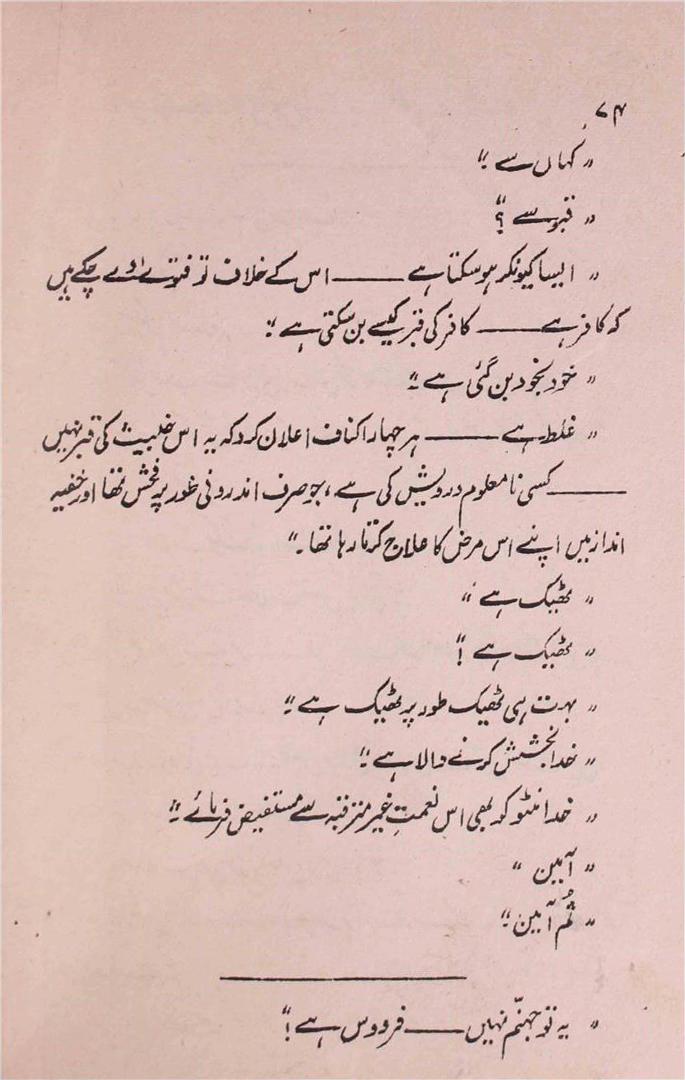 ۷۴
" کہاں سے ۔"
" قبر سے ؟"
" ایسا کیونکر ہو سکتا ہے ــــــ اس کے خلاف تو فتوے دے چکے ہیں
کہ کافر ہے ــــــ کافر کی قبر کیسے بن سکتی ہے ۔"
" خود بخود بن گئی ہے ۔"
" غلط ہے ــــــ ہر چہار اکناف اعلان کر دکہ یہ اس خبیث کی قبر نہیں
ــــــ کسی نامعلوم درویش کی ہے ، جو صرف اندرونی طور پر فحش تھا اور خفیہ
انداز میں اپنے اس مرض کا علاج کرتا رہا تھا ۔"
" ٹھیک ہے "
" ٹھیک ہے !"
" بہت ہی ٹھیک طور پر ٹھیک ہے ۔"
" خدا بخشش کرنے والا ہے ۔"
" خدا منٹو کو بھی اس نعمتِ غیر مترقبہ سے مستفیض فرمائے ۔"
" آمین "
" ثُم آمین ۔"
" یہ تو جہنّم نہیں ــــــ فردوس ہے !"